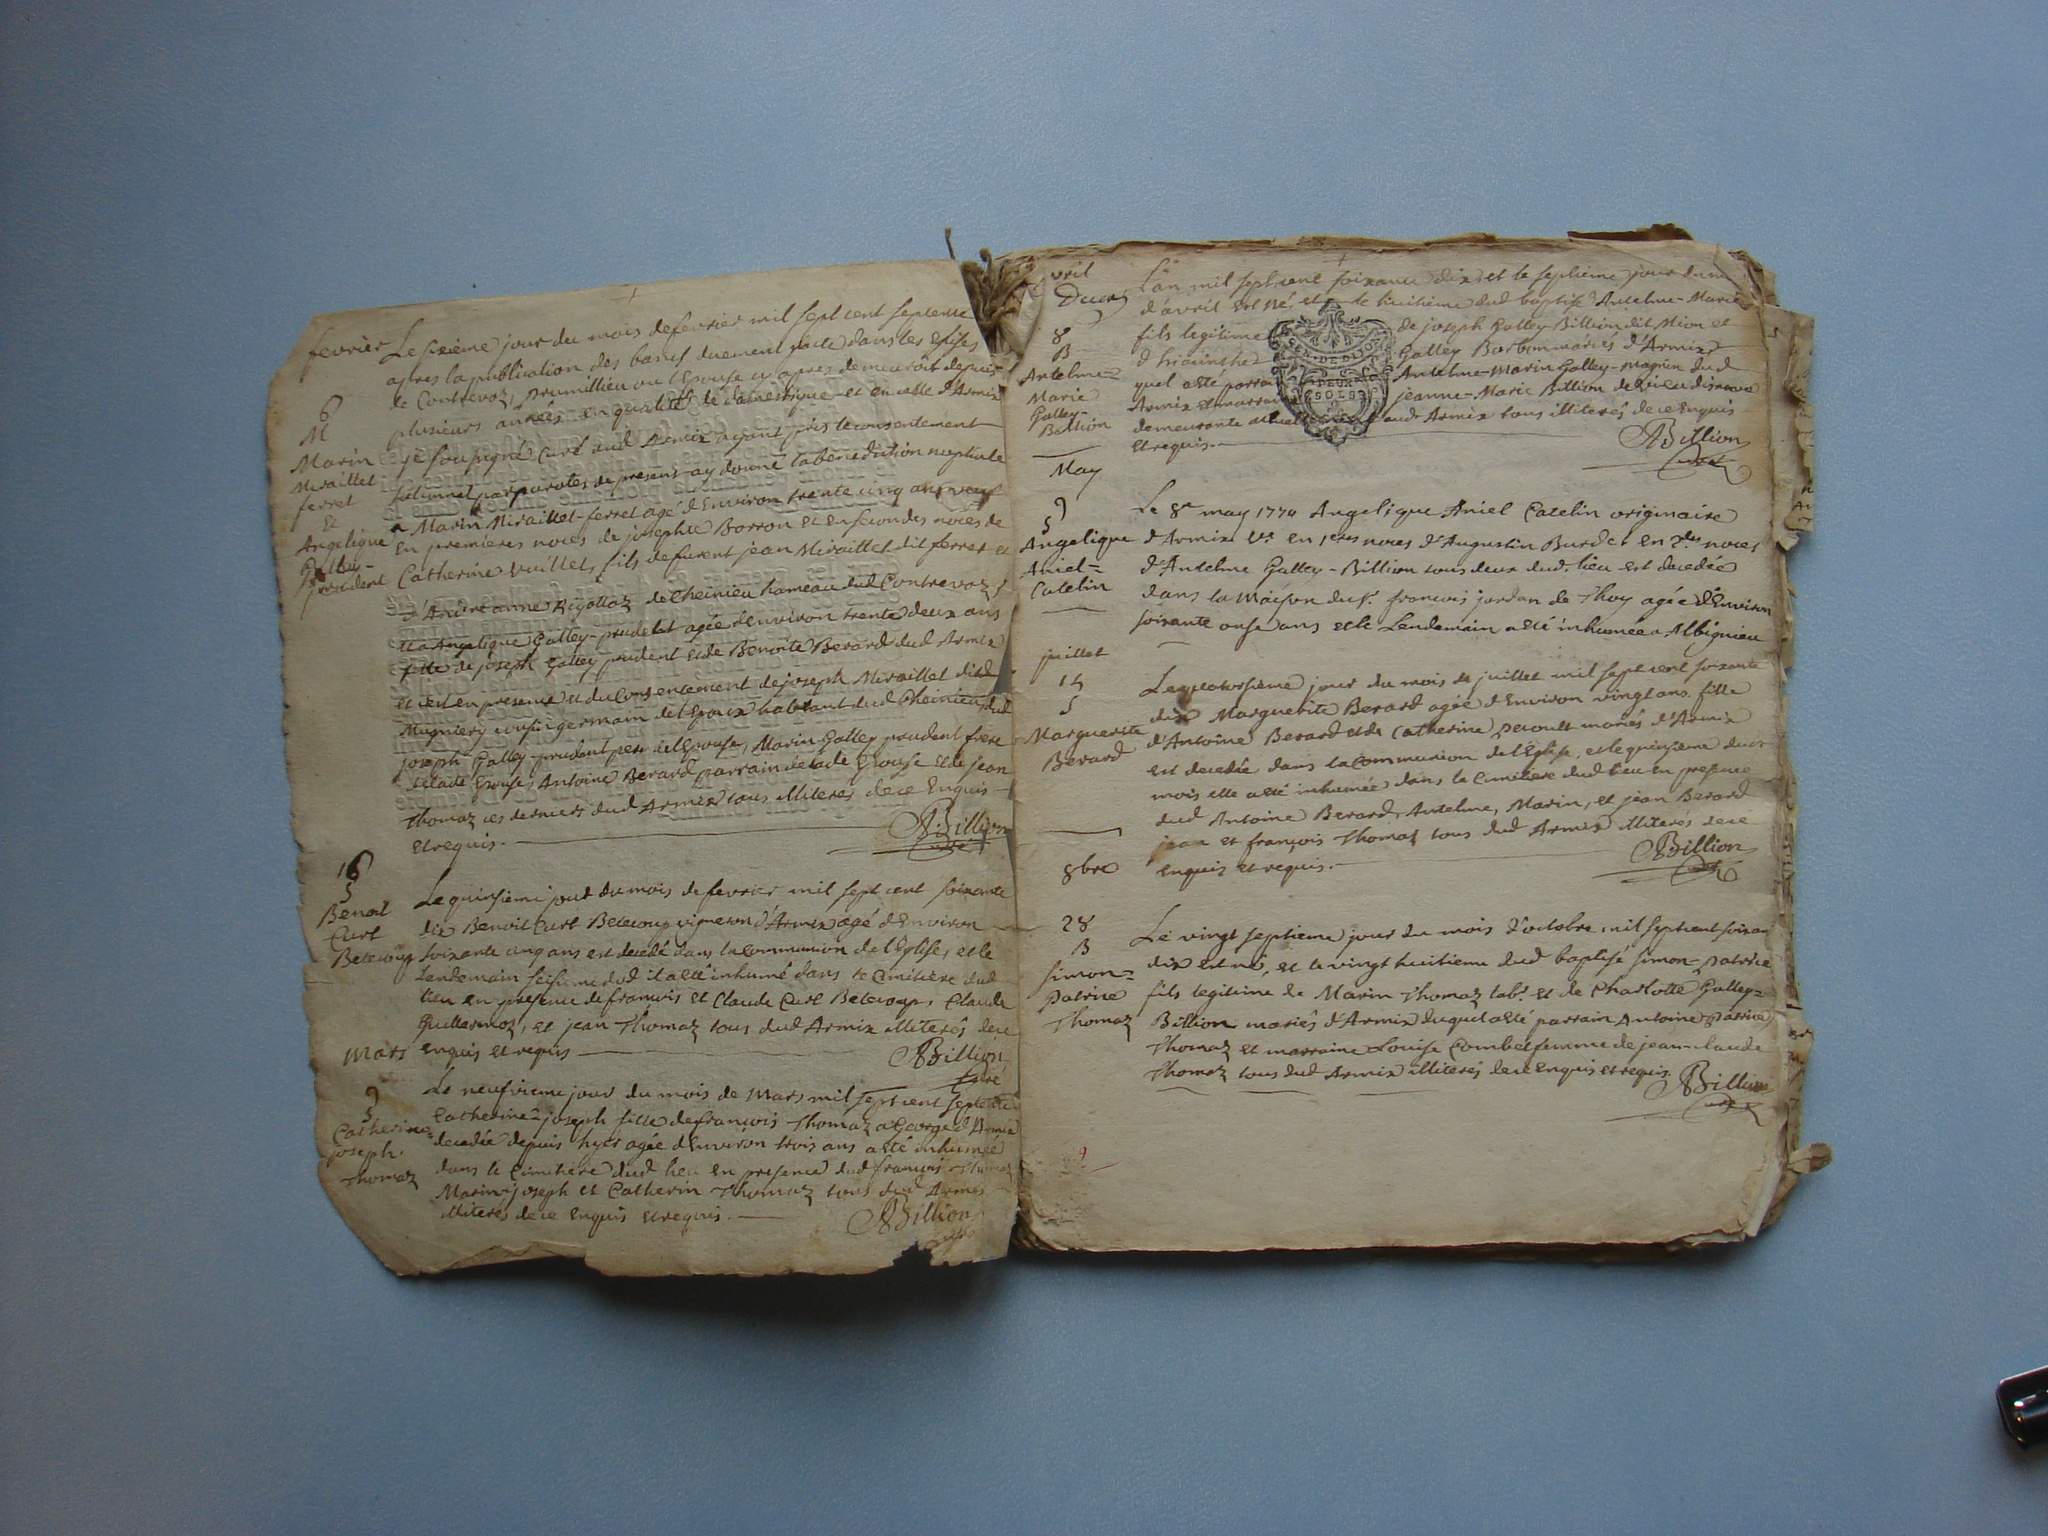 fevrier
6
M
Marin
Miraillet
ferret
Et
Angelique
Galley-
prudent
Le sixième jour du mois de fevrier mil sept cent septente
apres la publication des bancs duement faite dans les Eglises
de Contrevoz, prumillieu ou l'Epouse cy apres demeuroit depuis
plusieurs années en qualité de domestique et en celle d'Armix
je soussigné Curé dud Armix ayant pris le consentement
par parolles de presens ay donné la benediction nuptiale
a Marin Miraillet-ferret agé d'Environ trente cinq ans veuf
en premieres noces de josephte Borron et en secondes noces de
Catherine Vuillet, fils de furent jean Miraillet dit ferret et
d'Anne Rigottaz de Cheinieu hameau dud Contrevoz,
et a Angelique Galley-prudent agée d'Environ trente deux ans
fille de joseph Galley prudent et de Benoite Berard dud Armix
et c'est en presence et du Consentement de joseph Miraillet dit
Mugniery cousin germain de l'Epoux habitant dud Cheinieu, dud
joseph Galley-prudent pere de l'Epouse, Marin Galley prudent frere
de lade Epouse, Antoine Berard parrain de lade Epouse et de jean
Thomaz ces derniers dud Armix tous illiterés de ce Enquis
et requis.
ABillion
Curé
16
S
Benoit
Curt
Betecoup
Le quinsieme jour du mois de fevrier mil sept cent soixante
dix Benoit Curt Betecoup vigneron d'Armix agé d'Environ
soixante cinq ans est decedé dans la Communion de l'Eglise, et le
Lendemain seisieme dud il a eté inhumé dans le Cimitiere dud
lieu en presence de francois et Claude Curt Betecoup, Claude
Guillermoz, et jean Thomaz tous dud Armix illiterés de ce
Enquis et requis
ABillion
Curé
Mars
9
S
Catherine
joseph
Thomaz
Le neufvieme jour du mois de Mars mil sept cent septente
Catherine joseph fille de francois Thomaz a George d'Armix
decedée depuis hyer agée d'Environ trois ans a eté inhumée
dans le Cimitiere dud lieu en presence dud francois Thomaz
Marin joseph et Catherin Thomaz tous dud Armix
illiterés de ce Enquis et requis.
ABillion
Curé
vril
Ducros
8
B
Antelme=
Marie
Galley-
Billion
L'an mil sept cent soixante dix et le septieme jour du mois
d'avril est né, et le huitieme dud baptisé Antelme-Marie
fils legitime de joseph Galley Billion dit Mion et
d'hiacinthe Galley Borbon mariés d'Armix
quel a eté parrain Antelme-Marin Galley-magnin dud
Armix et marraine jeanne-Marie Billion de
demeurante actuellement aud Armix tous illiterés de ce Enquis
et requis.
GEN. DE DIJON
DEUX
SOLS
ABillion
Curé
May
9
S
Angelique
Aniel=
Catelin
Le 8e may 1770 Angelique Aniel Catelin originaire
d'Armix Ve en 1eres noces d'Augustin Burdet en 2des noces
d'Antelme Galley-Billion tous deux dud. lieu est decedée
dans la Maison du Sr. francois jordan de Thoy agée d'Environ
soixante onse ans et le Lendemain a eté inhumée a Albignieu
juillet
15
S
Marguerite
Berard
Le quatorsieme jour du mois de juillet mil sept cent soixante
dix Marguerite Berard agée d'Environ vingt ans fille
d'Antoine Berard et de Catherine mariés d'Armix
est decedée dans la Communion de l'Eglise, et le quinsieme dud
mois elle a eté inhumée dans le Cimitiere dud lieu en presence
dud Antoine Berard, Antelme, Marin, et jean Berard
jean et françois Thomaz tous dud Armix illiterés de ce
enquis et requis.
ABillion
Curé
8bre
28
B
Simon=
patrice
Thomaz
Le vingt septieme jour du mois d'octobre mil sept cent soixan
dix est né, et le vingt huitieme dud baptisé Simon-patrice
fils legitime de Marin Thomaz labr. et de Charlotte Galley=
Billion mariés d'Armix duquel a eté parrain Antoine patrice
Thomaz et marraine Louise Combet femme de jean-claude
Thomaz tous dud Armix illiterés de ce enquis et requis.
ABillion
Curé